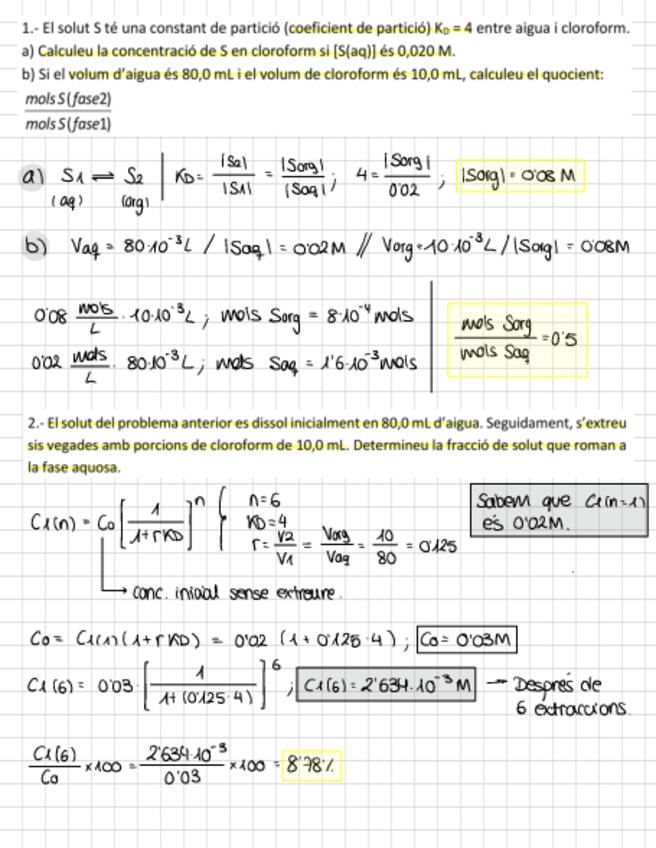 1.- El solut S té una constant de partició (coeficient de partició) K_D = 4 entre aigua i cloroform.
a) Calculeu la concentració de S en cloroform si [S(aq)] és 0,020 M.
b) Si el volum d'aigua és 80,0 mL i el volum de cloroform és 10,0 mL, calculeu el quocient:
mols S(fase2)
mols S(fase1)
a) S1 ⇌ S2 | KD = |S2|/|S1| = |Sorg|/|Saq| ; 4 = |Sorg|/0'02 ; |Sorg| = 0'08 M
(aq) (org)
b) Vaq = 80·10⁻³L / |Saq| = 0'02M // Vorg = 10·10⁻³L / |Sorg| = 0'08M
0'08 mols/L · 10·10⁻³L ; mols Sorg = 8·10⁻⁴ mols
0'02 mols/L · 80·10⁻³L ; mols Saq = 1'6·10⁻³ mols
mols Sorg/mols Saq = 0'5
2.- El solut del problema anterior es dissol inicialment en 80,0 mL d'aigua. Seguidament, s'extreu
sis vegades amb porcions de cloroform de 10,0 mL. Determineu la fracció de solut que roman a
la fase aquosa.
C1(n) = Co [1/(1+rKD)]ⁿ
n=6
KD=4
r = V2/V1 = Vorg/Vaq = 10/80 = 0'125
Sabem que C1(n=1)
és 0'02M.
conc. inicial sense extreure.
Co = C1(1)(1+rKD) = 0'02 (1+0'125·4) ; Co = 0'03M
C1(6) = 0'03 · [1/(1+(0'125·4))]⁶ ; C1(6) = 2'634·10⁻³M → Després de
6 extraccions.
C1(6)/Co x100 = 2'634·10⁻³/0'03 x100 = 8'78%